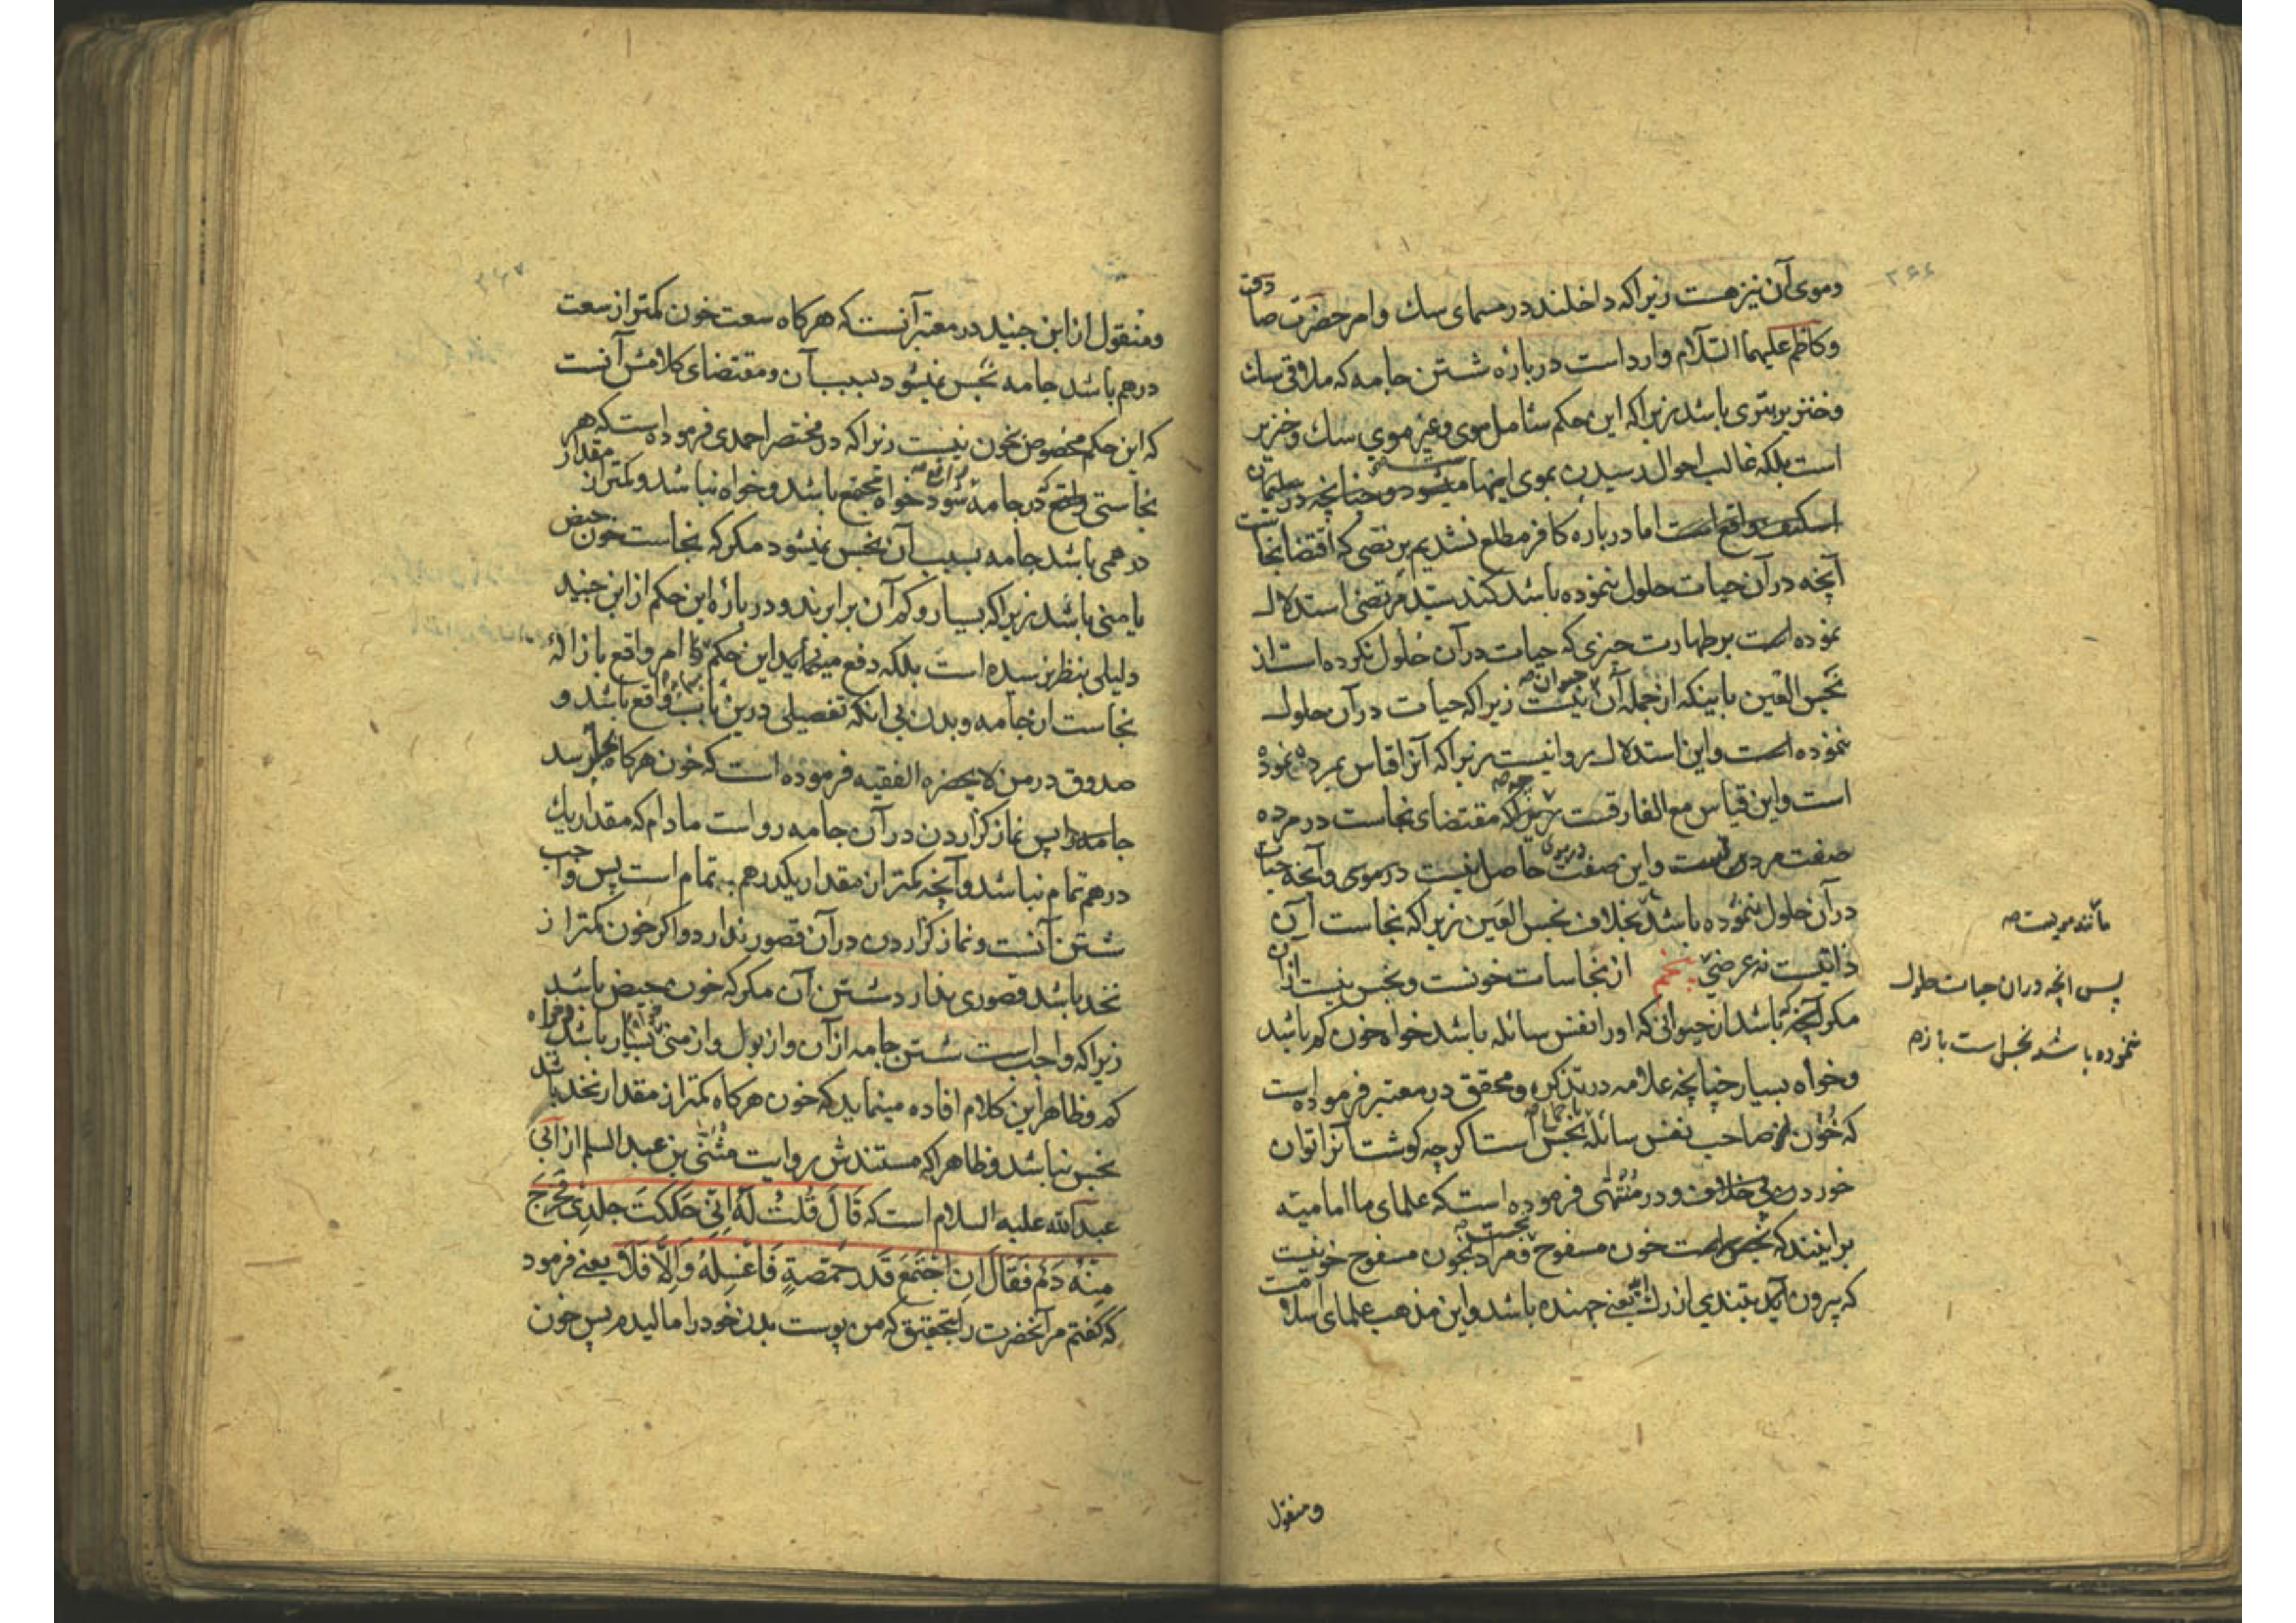 ۲۶۶
وموی آن نیز هست زیرا که داخلند در مسمای سك وامر حضرت صادق
وکاظم علیهما السّلام وارد است در باره شستن جامه که ملاقی سك
وخنزیر بتری باشد زیرا که این حکم شامل موی وغیر موی سك وخنزیر
است بلکه غالب احوال رسیدن بموی اینها میشود وچنانچه در سلیمان
اما در باره کافر مطلع نشدیم بر نصی که اقتضا نجاست
آنچه در آن حیات حلول ننموده باشد کند سیّد مرتضی استدلال
نموده است بر طهارت چیزی که حیات در آن حلول نکرده است از
نجس العین باینکه از جمله آن حیوان نیست زیرا که حیات در آن حلول
ننموده است واین استدلال روا نیست زیرا که آنرا قیاس بمرده نموده
است واین قیاس مع الفارقست زیرا که مقتضای نجاست در مرده
صفت مردن است واین صفت حاصل نیست در موی وآنچه حیات
در آن حلول ننموده باشد بخلاف نجس العین زیرا که نجاست آن
ذاتیست نه عرضی پنجم از نجاسات خونست ونجس نیست از آن
مکر آنچه باشد از حیوانی که او را نفس سائله باشد خواه خون کم باشد
وخواه بسیار چنانچه علامه در تذکره ومحقق در معتبر فرموده است
که خون از صاحب نفس سائله نجس است اکرچه کوشت آنرا توان
خوردن بی خلاف ودر منتهی فرموده است که علمای ما امامیّه
برانیند که نجس است خون مسفوح ومراد بخون مسفوح خونیست
که بیرون آید بتندی از رك یعنی جهنده باشد واین مذهب علمای اسلامست
مانند مویست صه
پس آنچه در آن حیات حلول
ننموده باشد نجس است باز صه
ومنقول
۲۶۷
ومنقول از ابن جنید در معتبر آنست که هرکاه سعت خون کمتر از سعت
درهم باشد جامه نجس نمیشود بسبب آن ومقتضای کلامش آنست
که این حکم مخصوص بخون نیست زیرا که در مختصر احمدی فرموده است که هر
نجاستی واقع در جامه شود خواه مجتمع باشد وخواه نباشد وکمتر از مقدار
درهمی باشد جامه بسبب آن نجس نمیشود مکر که نجاست خون حیض
یا منی باشد زیرا که بسیار وکم آن برابرند ودر باره این حکم از ابن جنید
دلیلی بنظر نرسیده است بلکه دفع مینماید این حکم را امر واقع بازالهٔ
نجاست از جامه وبدن بی آنکه تفصیلی درین باب واقع باشد و
صدوق در من لا یحضره الفقیه فرموده است که خون هرکاه بجامه رسد
جامه را پس نماز کزاردن در آن جامه رواست مادام که مقدار یك
درهم تمام نباشد وآنچه کمتر از مقدار یکدرهم به تمام است پس واجب
شستن آنست ونماز کزاردن در آن قصور ندارد واکر خون کمتر از
نخد باشد قصوری ندارد شستن آن مکر که خون حیض باشد
زیرا که واجب است شستن جامه از آن واز بول واز منی خواه بسیار باشد وخواه
کم وظاهر این کلام افاده مینماید که خون هرکاه کمتر از مقدار نخد باشد
نجس نباشد وظاهرا که مستندش روایت مثنّی بن عبد السلم از أبی
عبد الله علیه السلام است که قَالَ قُلتُ لَهُ اِنّی حَکَکتُ جِلدِی فَخَرَجَ
مِنْهُ دَمٌ فَقَالَ اِنِ اجْتَمَعَ قَدرَ حِمّصَةٍ فَاغسِلهُ وَاِلّا فَلَا یعنی فرمود
که کفتم مر آنحضرت را بتحقیق که من پوست بدن خود را مالیدم پس خون